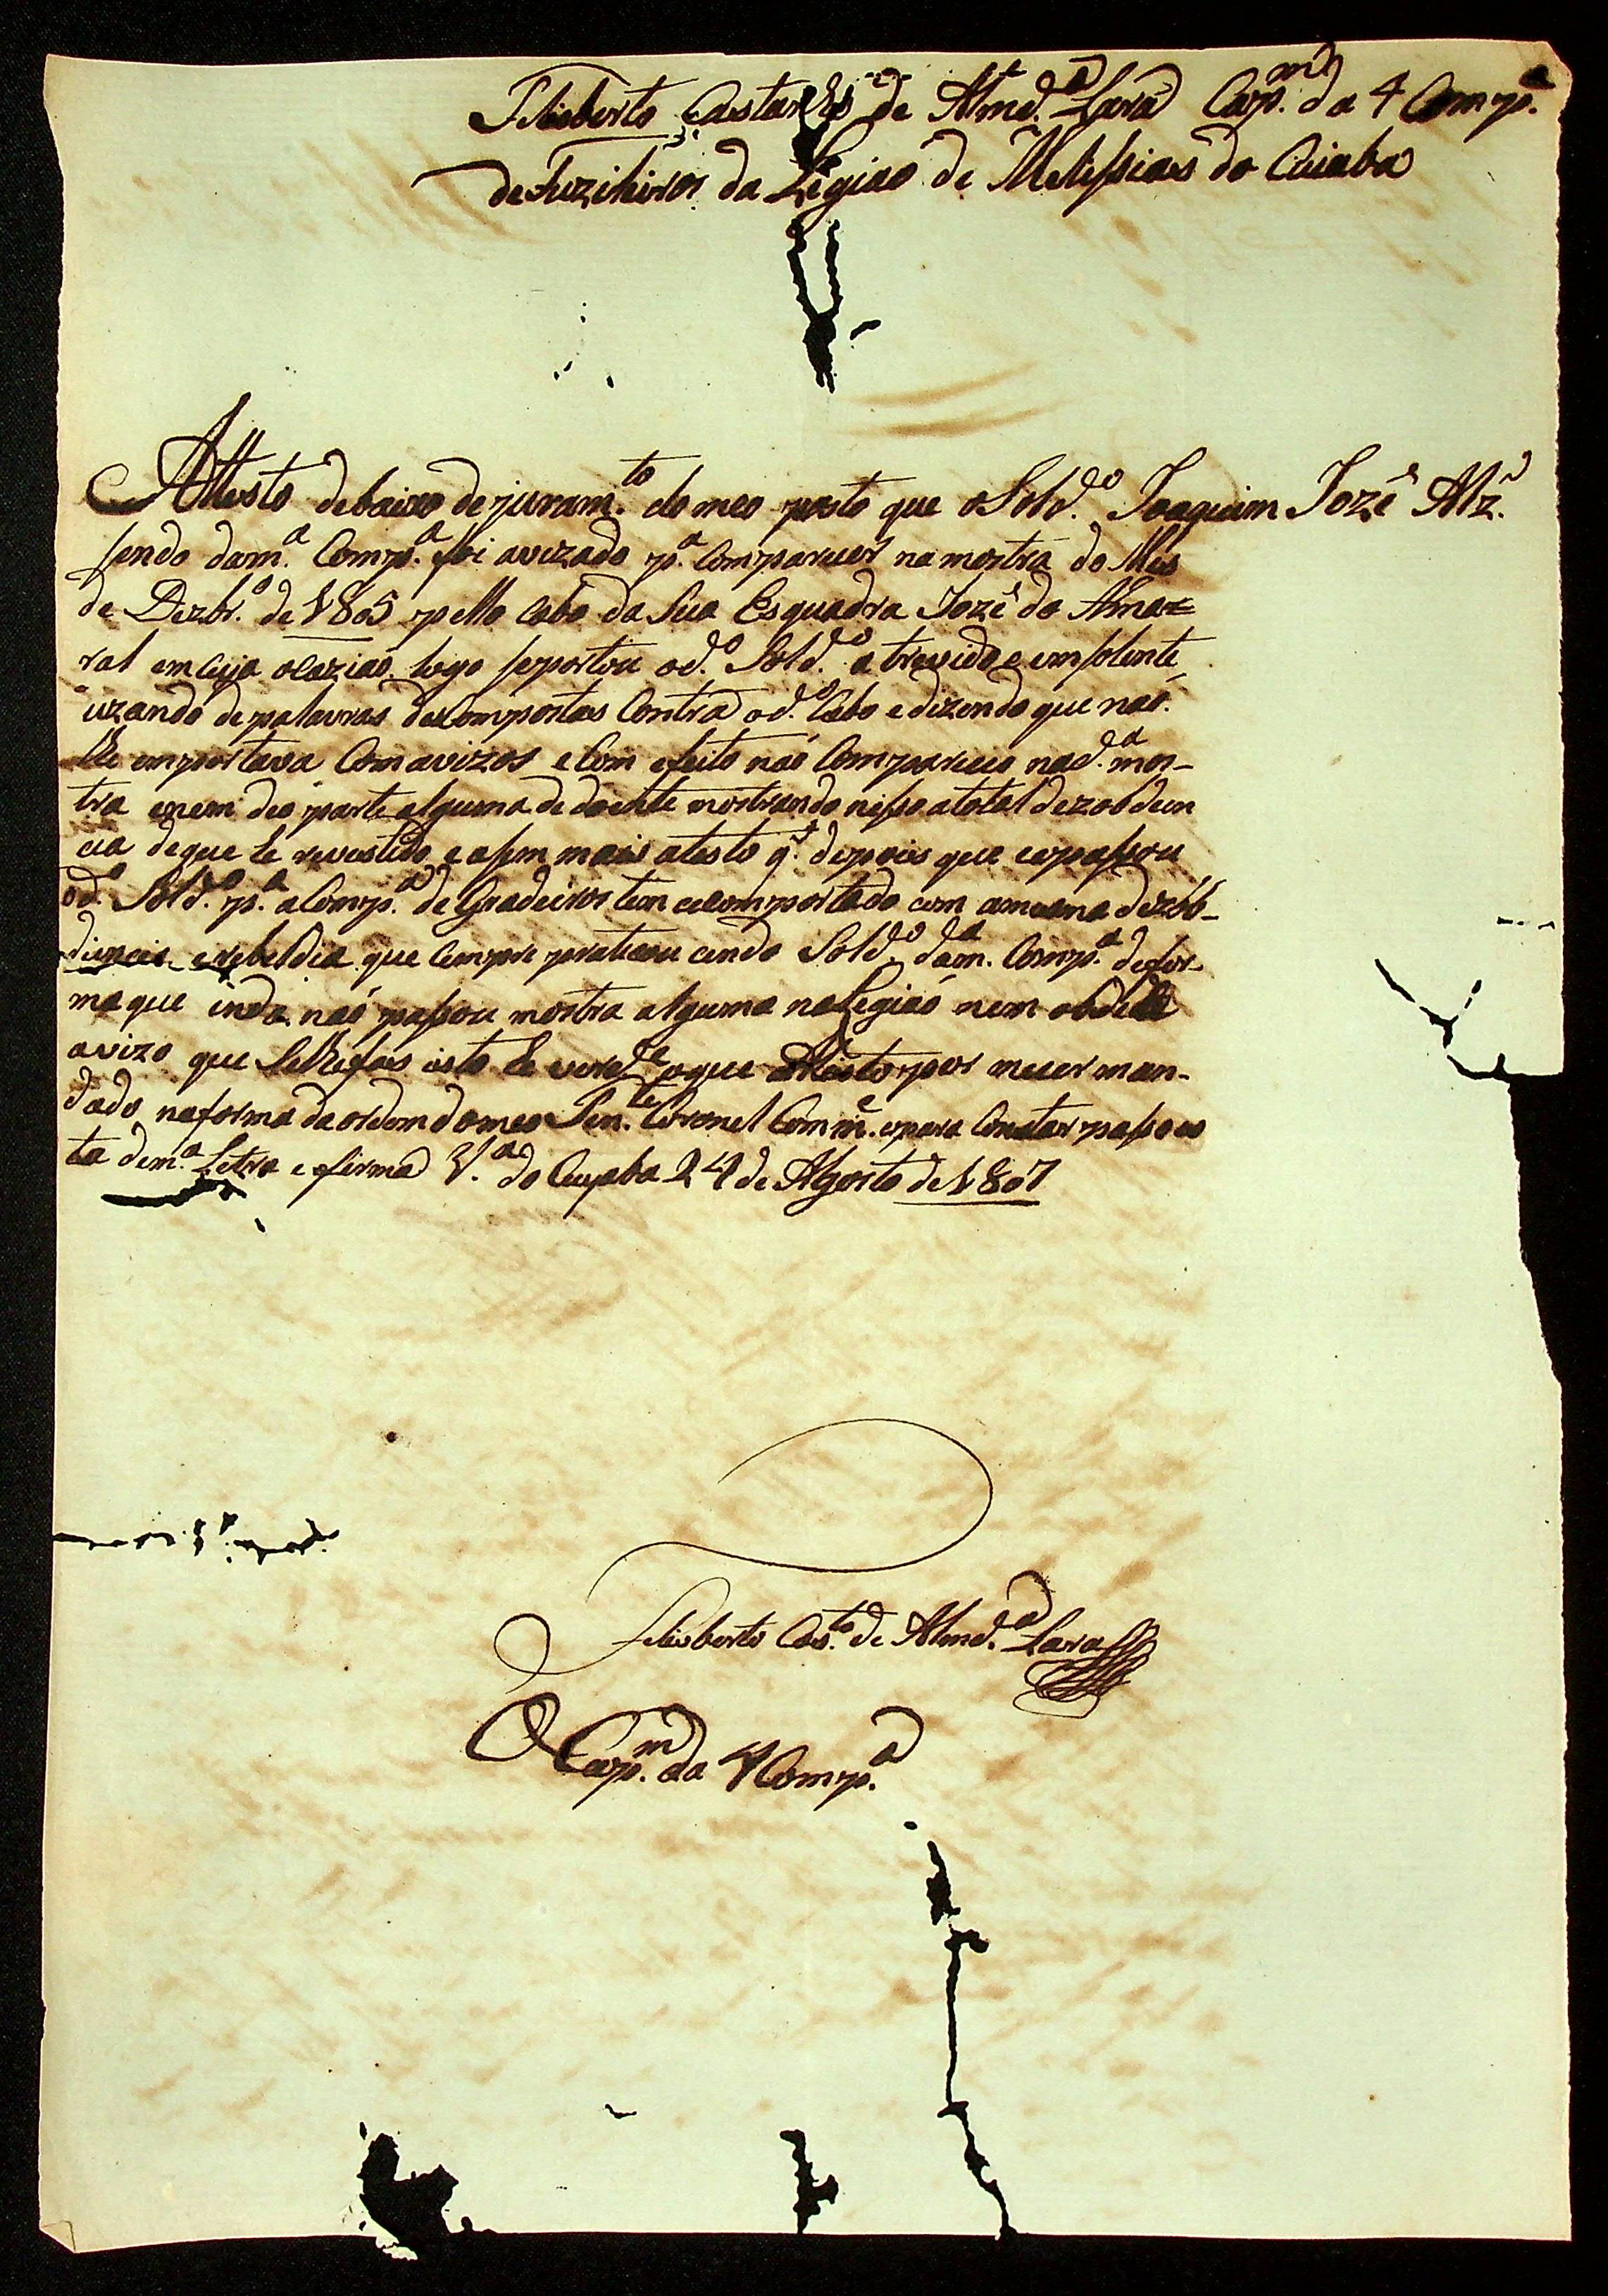 Felisberto Castanho de Almd.ª Lara Cap.m da 4 Comp.ª
de Fuzileiros da Legiaõ de Melissias do Cuiaba
Attesto debaixo de juram.to do meo posto que o Sold.º Joaquim Jozê Alz.
sendo da m.ª Comp.ª foi avizado p.ª Comparecer na mostra do Mês
de Dezbr.º de 1805 pello Cabo da Sua Esquadra Jozê do Amar
ral em cuja ocaziaõ logo se portou o d.º Sold.º atrevido e emsolente
uzando de palavras descompostas Contra o d.º Cabo e dizendo que naõ
lhe emportava Com avizos e Com efeito naõ Compareceo na d.ª mos-
tra e nem deo parte alguma de doente mostrando nisso a total dezobden
cia de que he revestido, e asim mais atesto q.e depois que se passou
o d.º Sold.º p.ª a Comp.ª de Gradeiros tem se comportado com a mesma dezob-
diencia e rebeldia que Cempre praticou cendo Sold.º da m.ª Comp.ª de for-
ma que inda naõ passou mostra alguma na Legiaõ nem obdece
avizo que se lhe fas isto he verd.e o que Attesto por me ser man-
dado na forma da ordem do meo Ten.te Coronel Comm.e e para Constar passo es
ta de m.ª Letra e firma V.ª do Cuyaba 24 de Agosto de 1807
Felisberto Cas.to de Almd.ª Lara
Cap.m da 4 Comp.ª